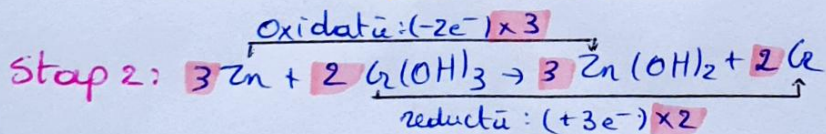 Oxidatie: (-2e⁻) x 3
Stap 2: 3 Zn + 2 Cr(OH)₃ → 3 Zn(OH)₂ + 2 Cr
reductie: (+3e⁻) x 2